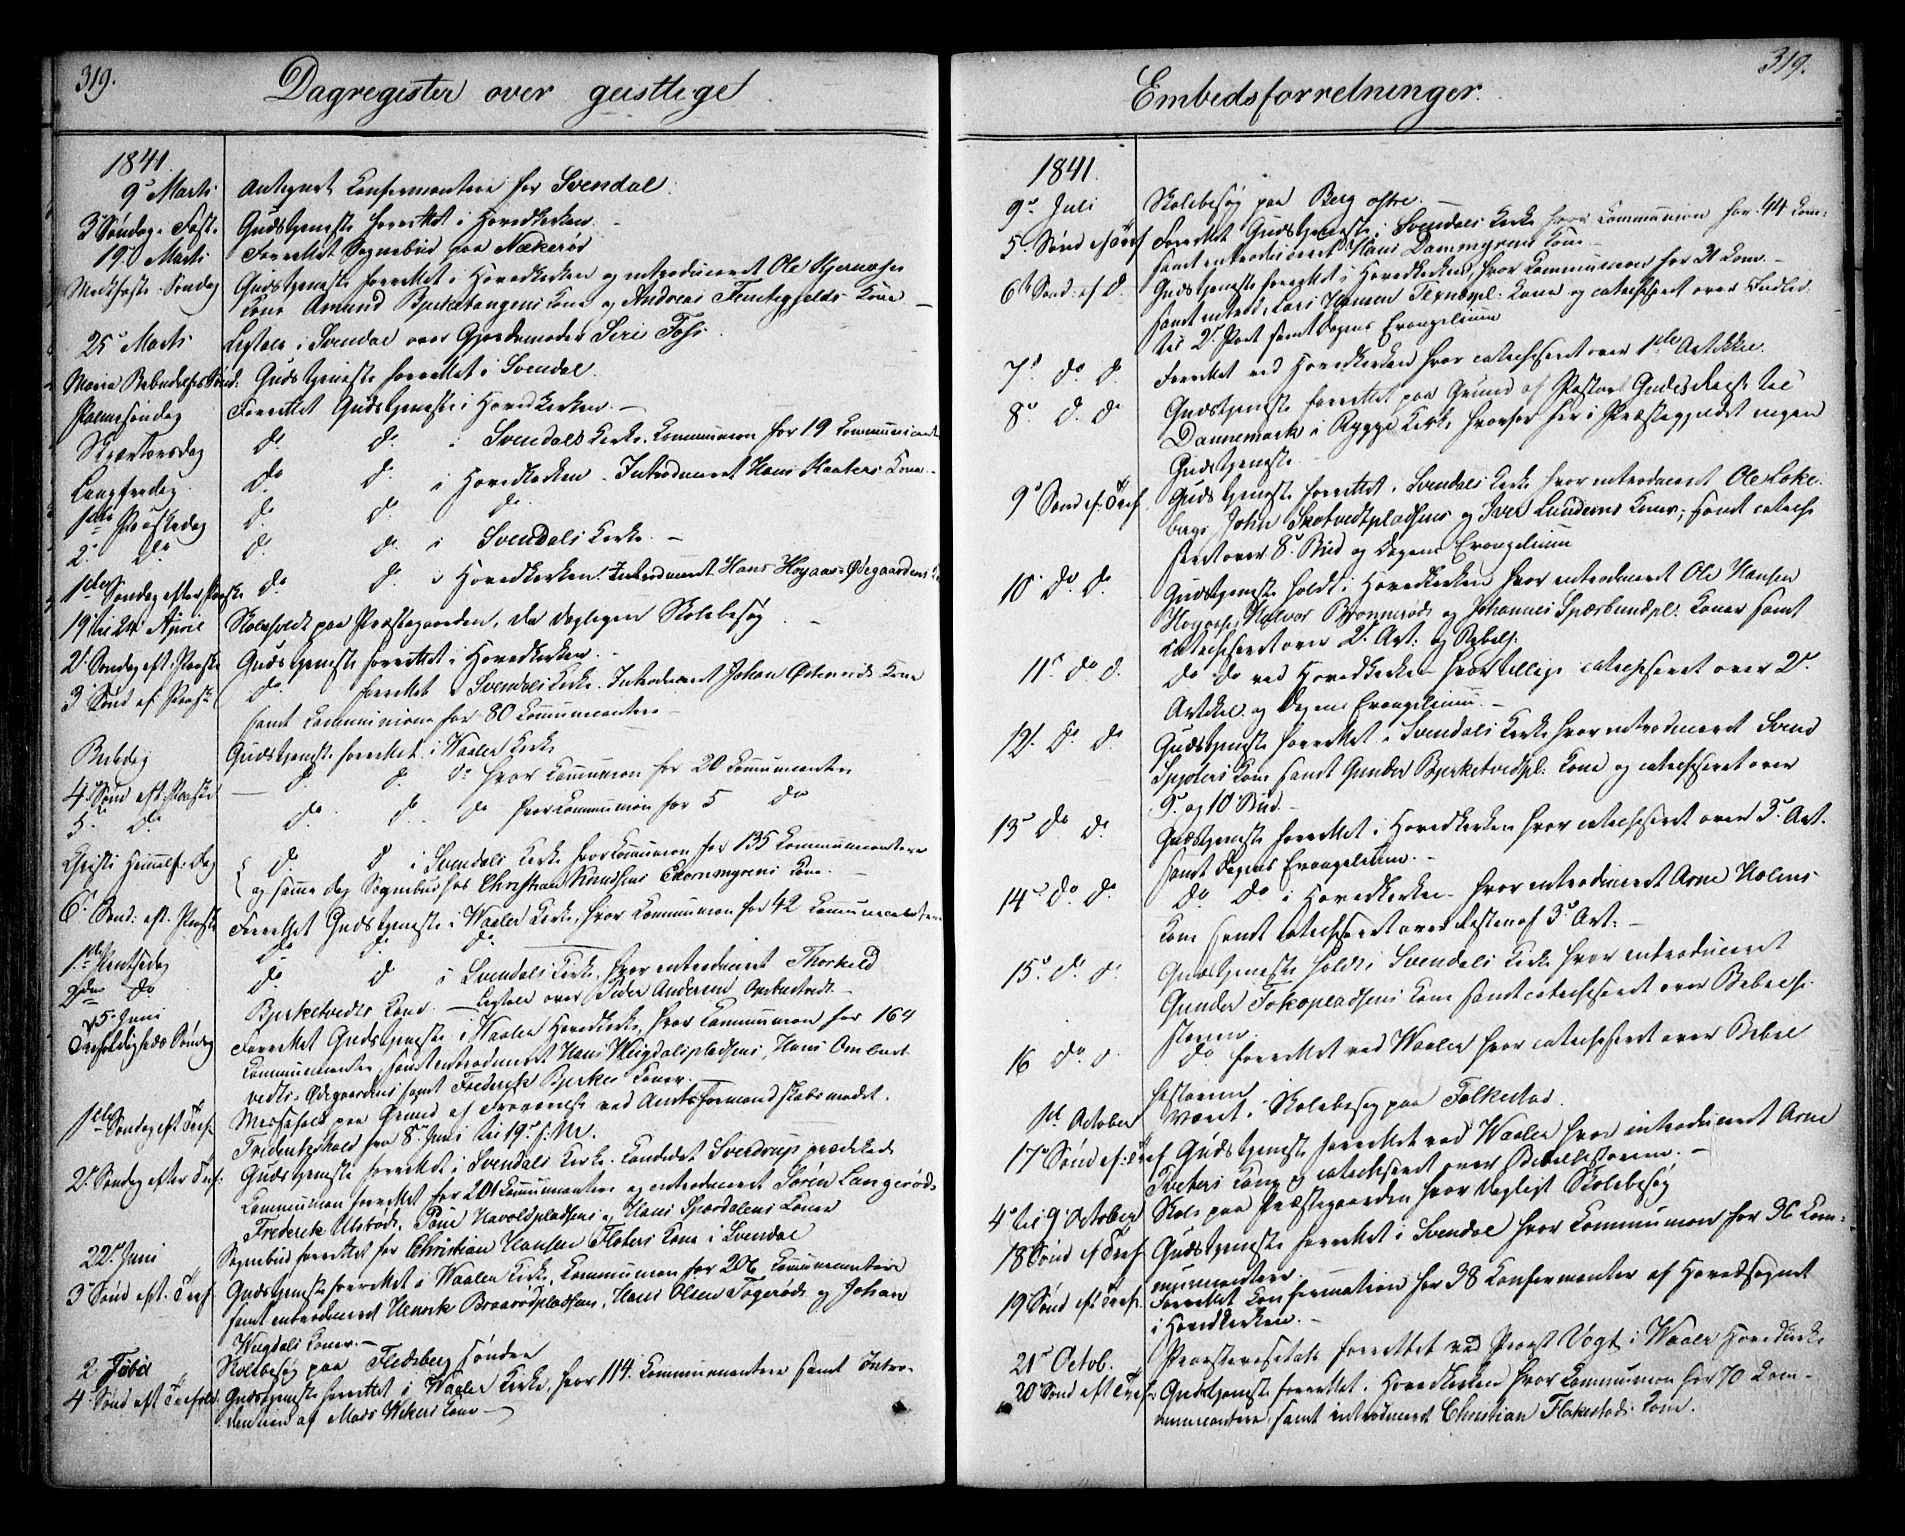 319.
Dagregister over geistlige
1841
9de Marts Antegnet Konfirmantere for Svendal.
3die Søndag i Faste. Gudstjeneste forrettet i Hovedkirken. —
19de Marts Forrettet Sognebud paa Nækerød
Midtfaste-Søndag Gudstjeneste forrettet i Hovedkirken og introduceret Ole Kjernæses
Kone Amund Bjerketangens Kone og Andreas Kone —
25de Marts Ligtale i Svendal over Gjordemoder Siri Foss.
Maria Bebudelses Sønd: Gudstjeneste forrettet i Svendal.
Palmesøndag Forrettet Gudstjeneste i Hovedkirken. —
Skjærtorsdag do do i Svendals Kirke. Kommunion for 19 Kommunicantere
Langfredag do do i Hovedkirken. Introduceret Hans Kone —
1ste Paaskedag do do do
2. do do do i Svendals Kirke. —
1ste Søndag efter Paaske do do i Hovedkirken. Introduceret Hans Hogaas-Ødegaardens
19 til 24 April Skole holdt paa Præstegaarden, da daglegen Skolebesøg —
2. Søndag eft. Paaske Gudstjeneste forrettet i Hovedkirken. —
3. Sønd ef. Paaske do forrettet i Svendals Kirke. Introduceret Johan Østenruds Kone
samt Kommunion for 80 Kommunicantere —
Bededag Gudstjeneste forrettet i Waaler Kirke
4. Sønd eft. Paaske — do do do hvor Kommunion for 20 Kommunicantere
5. do do do do hvor Kommunion for 5 do
Christi Himmelf. Dag do do i Svendals Kirke hvor Kommunion for 135 Kommunicantere
og samme dag Sognebud hos Christian Knudsens Kone. —
6. Sønd: eft. Paaske Forrettet Gudstjeneste i Waaler Kirke, hvor Kommunion for 42 Kommunicantere
1ste Pintsedag do do do
2den do do do i Svendals Kirke, hvor introduceret Thorkild
Bjerketvedts Kone. —
5. Juni Ligtale over Peder Andersen —
Trefoldigheds Søndag Forrettet Gudstjeneste i Waaler Hovedkirke, hvor Kommunion for 164
Kommunicantere, samt introduceret Hans Wiigdalspladsens, Hans Ombert
vedts-Ødegaardens samt Frederik Bjerkes Koner.
1ste Søndag eft Tref. Messefald paa Grund af Fraværelse ved Amtsformandskabsmødet.
holdt fra 8de Juni til 19de s. M.
2. Søndag efter Tref: Gudstjeneste forrettet i Svendals Kirke. Kandidat Sverdrup prædikede
Kommunion forrettet for 201 Kommunicantere og introduceret Søren Langerøds
Frederik Ulsrøds, Povel Havoldpladsens og Hans Spordalens Koner
22de Juni Sognebud forrettet for Christian Hansen Floters Kone i Svendal
3. Sønd eft. Tref. Gudstjeneste forrettet i Waaler Kirke, Kommunion for 206 Kommunicantere
samt introduceret Henrik Braarødpladsens, Hans Olsen Togerøds og Johan
Wiigdals Koner. —
2 Jøbel Skolebesøg paa Fledsberg søndre
4. Sønd eft Trefold: Gudstjeneste forrettet i Waaler Kirke, hvor 114 Kommunicantere samt Intro-
duction af Mads Wikers Kone —
319.
Embedsforretninger.
1841.
9de Juli Skolebesøg paa Berg østre. —
5. Sønd ef Tref Forrettet Gudstjeneste i Svendals Kirke hvor Kommunion for 44 Kom:
samt introduceret Hans Dammyrens Kone —
6te Sønd: ef D. Gudstjeneste forrettet i Hovedkirken, hvor Kommunion for 31 Kom. —
samt introd. Lars Hansen Kone og catechiseret over Indled:
til 2. Part samt Dagens Evangelium
7de do d. Forrettet ved Hovedkirken hvor catechiseret over 1ste Artikkel.
8de d. do Gudstjeneste forrettet paa Grund af Pastor Gudes Reise til
Dannemark i Rygge Kirke, hvorfor her i Præstegjældet ingen
Gudstjeneste —
9de Sønd ef: Tref. Gudstjeneste forrettet i Svendals Kirke hvor introduceret Ole Loke
bergs, John Skotvedtpladsens og Iver Lunderns Koner, samt catechi
seret over 8de Bud og Dagens Evangelium
10. do do. Gudstjeneste holdt i Hovedkirken hvor introduceret Ole Hansen
Hogaas, Halvor Brønnerøds og Johannes Spærbundpl. Koner samt
catechiseret over 2. Art: og Bibelh.
11te do d. do do ved Hovedkirken hvor tillige catechiseret over 2de
Artikel og Dagens Evangelium. —
12te do do. Gudstjeneste forrettet i Svendals Kirke hvor introduceret Svend
Kone samt Gunder Bjerketvedpl. Kone og catechiseret over
9de og 10 Bud. —
13de do do. Gudstjeneste forrettet i Hovedkirken hvor catechiseret over 3de Art.
samt Dagens Evangelium. —
14de do do. do do i Hovedkirken. hvor introduceret Arne Holens
Kone samt catechiseret over Resten af 3de Art: —
15de do d. Gudstjeneste holdt i Svendals Kirke hvor introduceret
Gunder Fokopladsens Kone samt catechiseret over Bibelhi-
storien.
16 do d. do forrettet ved Waaler hvor catechiseret over Bibel
historien
1ste October Været i Skolebesøg paa Folkestad.
17de Sønd ef: Tref Gudstjeneste forrettet ved Waaler hvor introduceret Arne
Tveters Kone og catechiseret over Bibelhistorien. —
4de til 9de October Skole paa Præstegaarden hvor dagligt Skolebesøg
18 Sønd ef Tref Gudstjeneste forrettet i Svendal hvor Kommunion for 36 Kom-
municantere. —
19 Sønd eft. Tref. Forrettet Confirmation for 38 Konfirmanter af Hovedsognet
i Hovedkirken. —
21de Octob. Provstevisitats forrettet ved Provst Vogt i Waaler Hovedkirke
20de Sønd eft Tref: Gudstjeneste forrettet i Hovedkirken hvor Kommunion for 70 Kom-
municantere, samt introduceret Christian Flakestads Kone.